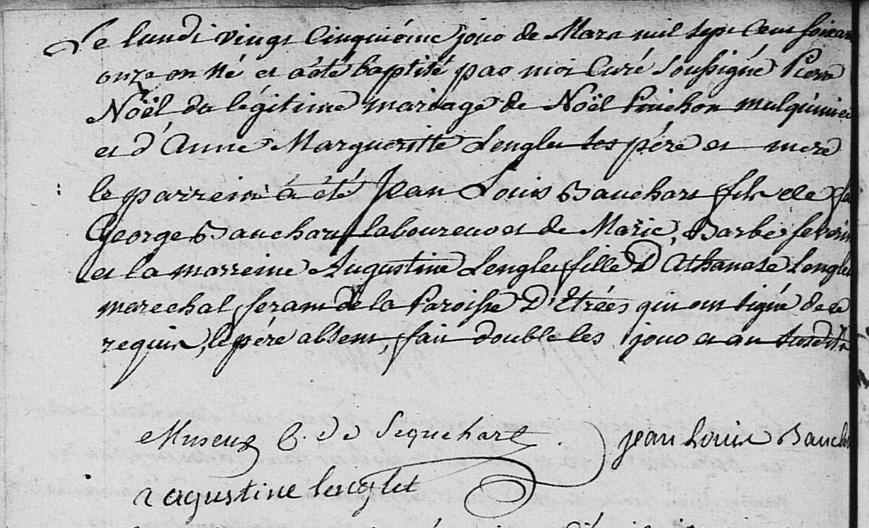 Le lundi vingt Cinquiéme jour de Mars mil sept Cent soixan
onze on né et a été baptisé par moi Curé soussigné Pierre
Noël du légitime mariage de Noël Pinchon mulquinier
et d'Anne Margueritte Lenglet ses pére et mere
le parrein a été Jean Louis Bauchart fils de feu
George Bauchart laboureur et de Marie Barbe
et la marreine Augustine Lenglet fille d'Athanase Lenglet
marechal ferant de la Paroisse d'Etrées qui ont signé de ce
requis, le pére absent, fait double les jour et an susdits
C. de Sequehart
jean Louis Bauchar
agustine lenglet